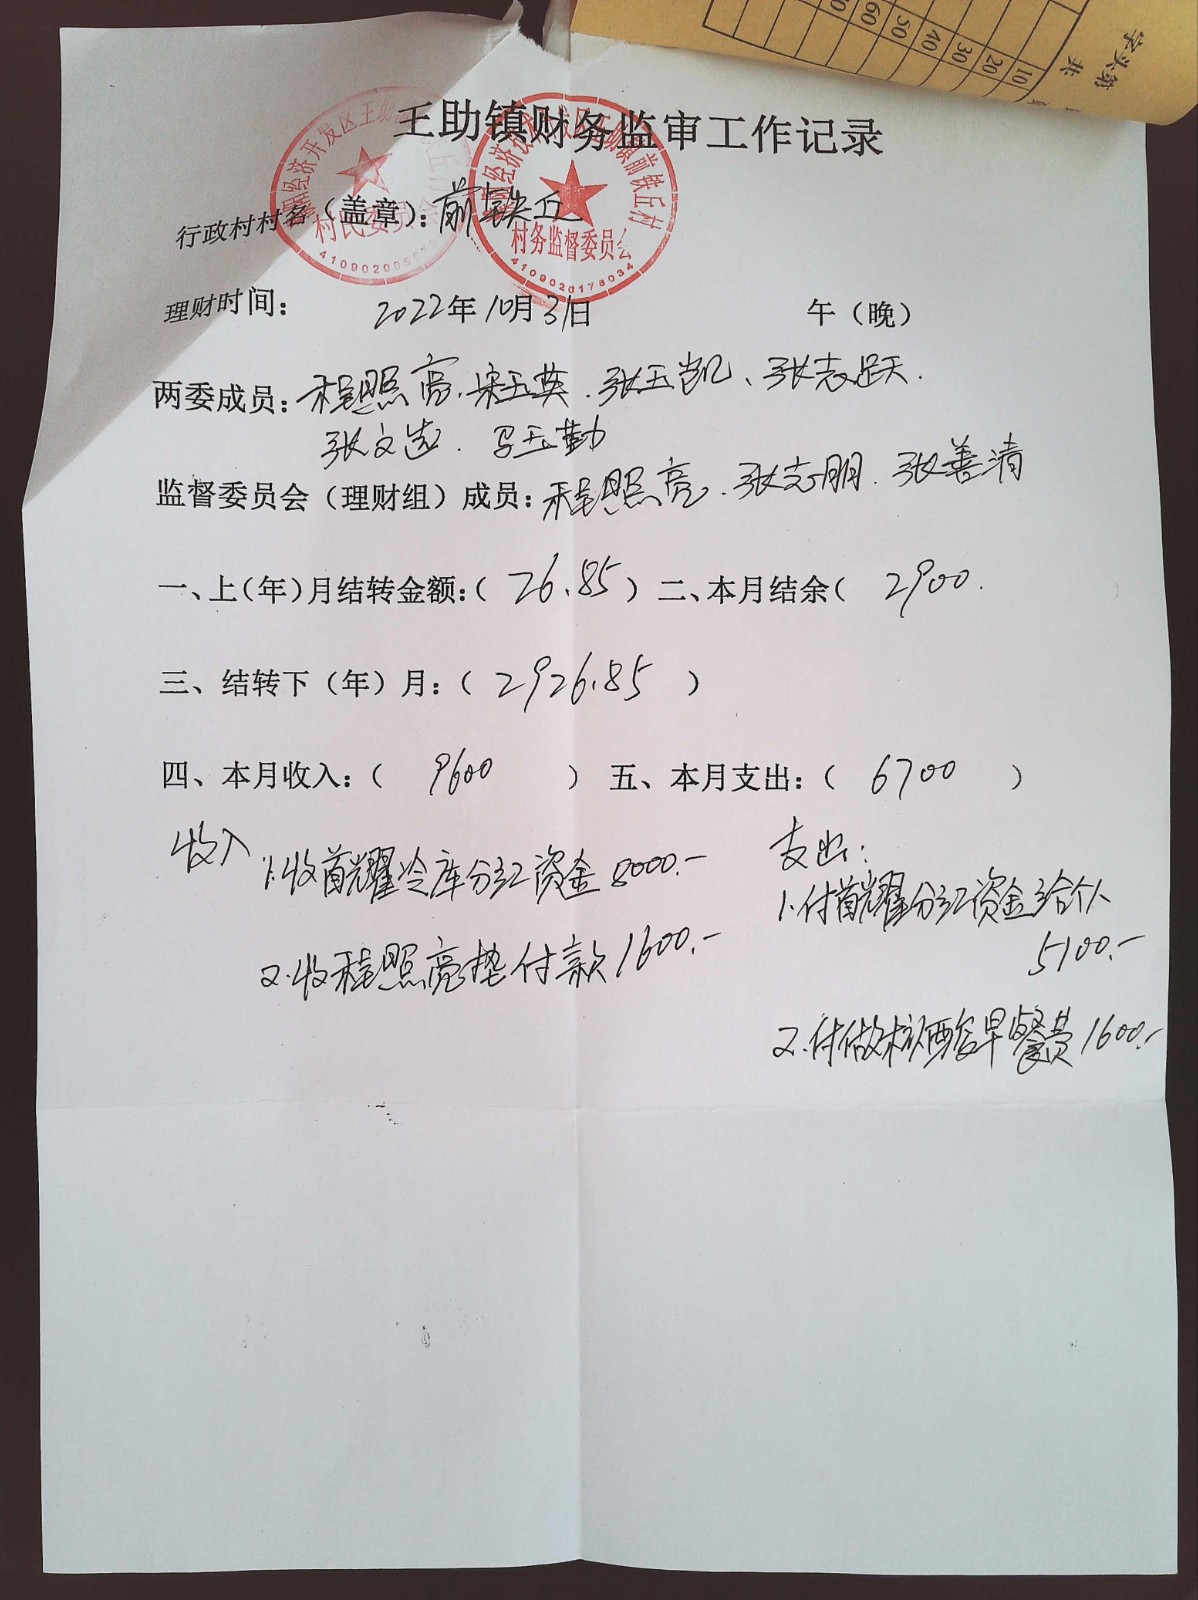 字头第
共
10
20
30
40
50
60
王助镇财务监审工作记录
经济开发区王助
村民委员会
经济技术开发区王助镇前铁丘村
村务监督委员会
4109020178034
行政村村名（盖章）：前铁丘
理财时间： 2022年10月31日 午（晚）
两委成员：程照亮、宋玉英、张玉凯、张志跃、
张文选、马玉勤
监督委员会（理财组）成员：程照亮、张志朋、张善清
一、上（年）月结转金额：（ 26.85 ）二、本月结余（ 2900.
三、结转下（年）月：（ 2926.85 ）
四、本月收入：（ 9600 ） 五、本月支出：（ 6700 ）
收入
1.收首耀冷库分红资金8000.-
2.收程照亮垫付款1600.-
支出：
1.付首耀分红资金给个人
5100.-
2.付做核酸早餐费1600.-